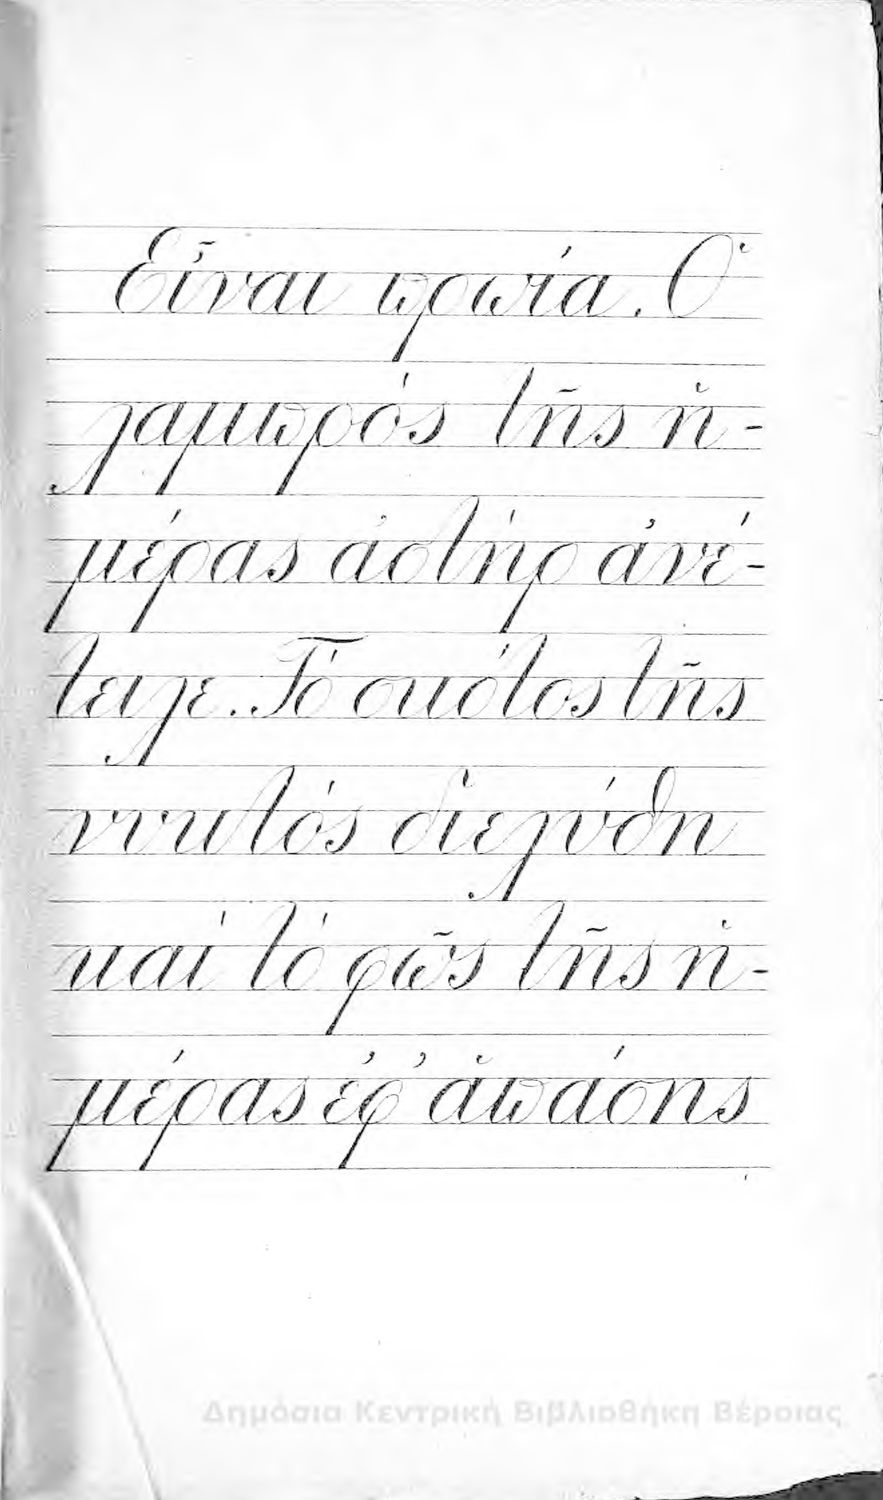 Εἶναι πρωία. Ὁ
λαμπρός τῆς ἡ-
μέρας ἀστήρ ἀνέ-
τειλε. Τό σκότος τῆς
νυκτός διελύθη
καί τό φῶς τῆς ἡ-
μέρας ἐφ' ἁπάσης
Δημόσια Κεντρική Βιβλιοθήκη Βέροιας